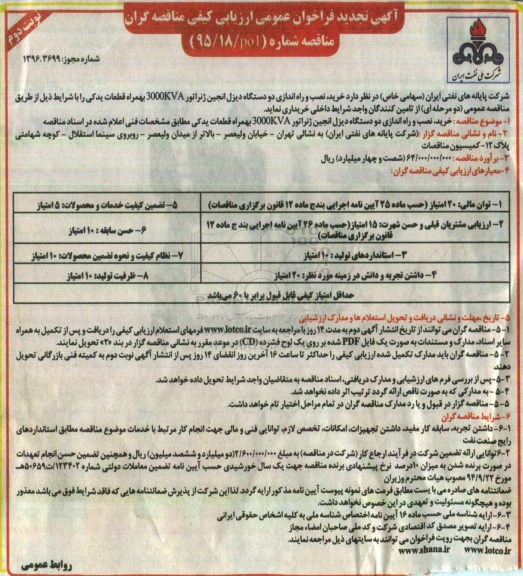 آگهی تجدید فراخوان عمومی ارزیابی کیفی مناقصه گران
مناقصه شماره (95/18/po1)
نوبت دوم
شرکت ملی نفت ایران
شماره مجوز: 1396.3699
شرکت پایانه های نفتی ایران (سهامی خاص) در نظر دارد خرید، نصب و راه اندازی دو دستگاه دیزل انجین ژنراتور 3000KVA بهمراه قطعات یدکی را با شرایط ذیل از طریق
مناقصه عمومی (دو مرحله ای) از تامین کنندگان واجد شرایط داخلی خریداری نماید.
1- موضوع مناقصه: خرید، نصب و راه اندازی دو دستگاه دیزل انجین ژنراتور 3000KVA بهمراه قطعات یدکی مطابق مشخصات فنی اعلام شده در اسناد مناقصه
2- نام و نشانی مناقصه گزار: (شرکت پایانه های نفتی ایران) به نشانی تهران - خیابان ولیعصر - بالاتر از میدان ولیعصر - روبروی سینما استقلال - کوچه شهامتی
پلاک 12- کمیسیون مناقصات
3- برآورد مناقصه: 64/000/000/000 (شصت و چهار میلیارد) ریال
4- معیارهای ارزیابی کیفی مناقصه گران:
1- توان مالی: 20 امتیاز (حسب ماده 25 آیین نامه اجرایی بند ج ماده 12 قانون برگزاری مناقصات)
5- تضمین کیفیت خدمات و محصولات: 5 امتیاز
2- ارزیابی مشتریان قبلی و حسن شهرت: 15 امتیاز (حسب ماده 26 آیین نامه اجرایی بند ج ماده 12
قانون برگزاری مناقصات)
6- حسن سابقه: 10 امتیاز
3- استانداردهای تولید: 10 امتیاز
7- نظام کیفیت و نحوه تضمین محصولات: 10 امتیاز
4- داشتن تجربه و دانش در زمینه مورد نظر: 20 امتیاز
8- ظرفیت تولید: 10 امتیاز
حداقل امتیاز کیفی قابل قبول برابر با 60 می باشد
5- تاریخ، مهلت و نشانی دریافت و تحویل استعلام ها و مدارک ارزشیابی
5-1- مناقصه گران می توانند از تاریخ انتشار آگهی دوم به مدت 14 روز با مراجعه به سایت www.lotco.ir فرمهای استعلام ارزیابی کیفی را دریافت و پس از تکمیل به همراه
سایر اسناد، مدارک و مستندات به صورت یک فایل PDF شده بر روی یک لوح فشرده (CD) در موعد مقرر به نشانی مناقصه گزار در بند «2» تحویل نمایند.
5-2- مناقصه گران باید مدارک تکمیل شده ارزیابی کیفی را حداکثر تا ساعت 16 آخرین روز انقضای 14 روز پس از انتشار آگهی نوبت دوم به کمیته فنی بازرگانی تحویل
دهند.
5-3- پس از بررسی فرم های ارزشیابی و مدارک دریافتی، اسناد مناقصه به متقاضیان واجد شرایط تحویل داده خواهد شد.
5-4- به مدارکی که به صورت ناقص ارائه گردد ترتیب اثر داده نخواهد شد.
5-5- مناقصه گزار در قبول و یا رد مدارک مناقصه گران در تمام مراحل اختیار تام خواهد داشت.
6- شرایط مناقصه گران
6-1- داشتن تجربه، سابقه کار مفید، داشتن تجهیزات، امکانات، تخصص لازم، توانایی فنی و مالی جهت انجام کار مرتبط با خدمات موضوع مناقصه مطابق استانداردهای
رایج صنعت نفت
6-2- توانایی ارائه تضمین شرکت در فرآیند ارجاع کار (شرکت در مناقصه) به مبلغ 2/600/000/000 (دو میلیارد و ششصد میلیون) ریال و همچنین تضمین حسن انجام تعهدات
در صورت برنده شدن به میزان 10 درصد نرخ پیشنهادی برنده مناقصه جهت یک سال خورشیدی حسب آیین نامه تضمین معاملات دولتی شماره 123402/ت50659هـ
مورخ 94/9/22 مصوب هیات محترم وزیران
ضمانتنامه های صادره می بایست مطابق فرمت های نمونه پیوست آیین نامه مذکور ارایه گردد. لذا این شرکت از پذیرش ضمانتنامه هایی که فاقد شرایط فوق می باشد معذور
بوده و هیچگونه مسئولیت و تعهدی در این خصوص نخواهد داشت.
6-3- ارایه شناسه ملی حسب ماده 16 آیین نامه اختصاص شناسه ملی به کلیه اشخاص حقوقی ایرانی
6-4- ارایه تصویر مصدق کد اقتصادی شرکت و کد ملی صاحبان امضاء مجاز
مناقصه گران بجهت رویت فراخوان می توانند به سایتهای ذیل مراجعه نمایند.
www.shana.ir www.lotco.ir
روابط عمومی